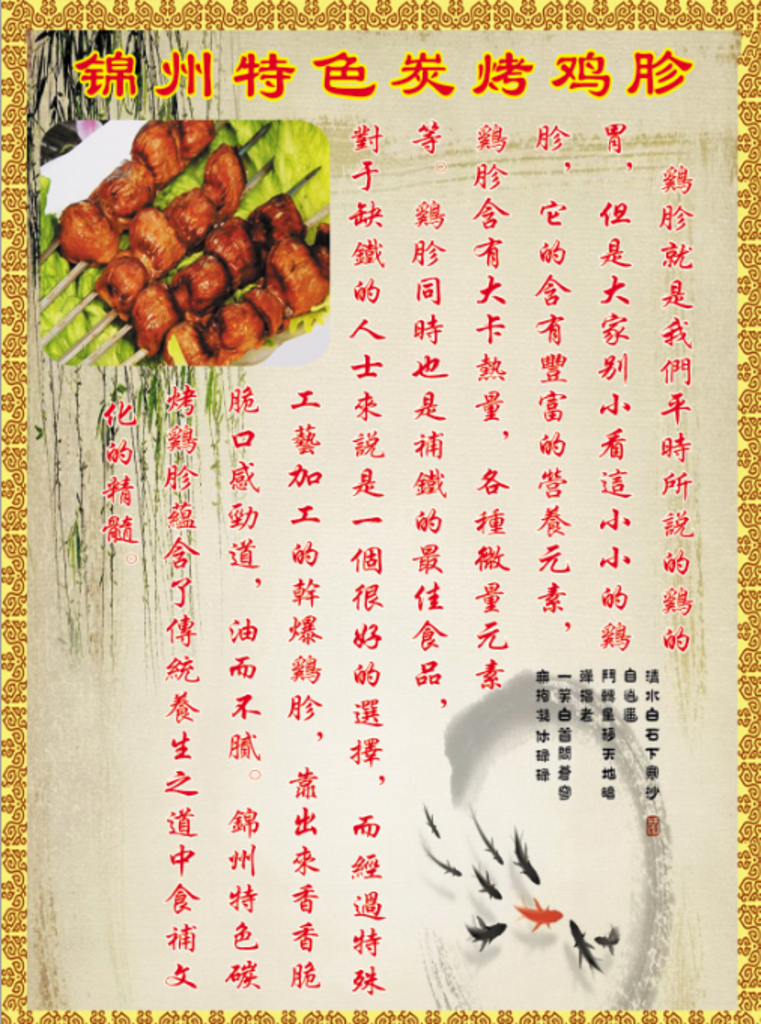 锦州特色炭烤鸡胗
鷄胗就是我們平時所説的鷄的
胃，但是大家别小看這小小的鷄
胗，它的含有豐富的營養元素，
鷄胗含有大卡熱量，各種微量元素
等。鷄胗同時也是補鐵的最佳食品，
對于缺鐵的人士來説是一個很好的選擇，而經過特殊
工藝加工的幹爆鷄胗，靠出來香香脆
脆口感勁道，油而不膩。錦州特色碳
烤鷄胗藴含了傳統養生之道中食補文
化的精髓。
清水白石下寒沙
自逍遥
鬥轉星移天地暗
彈指老
一笑白首問蒼穹